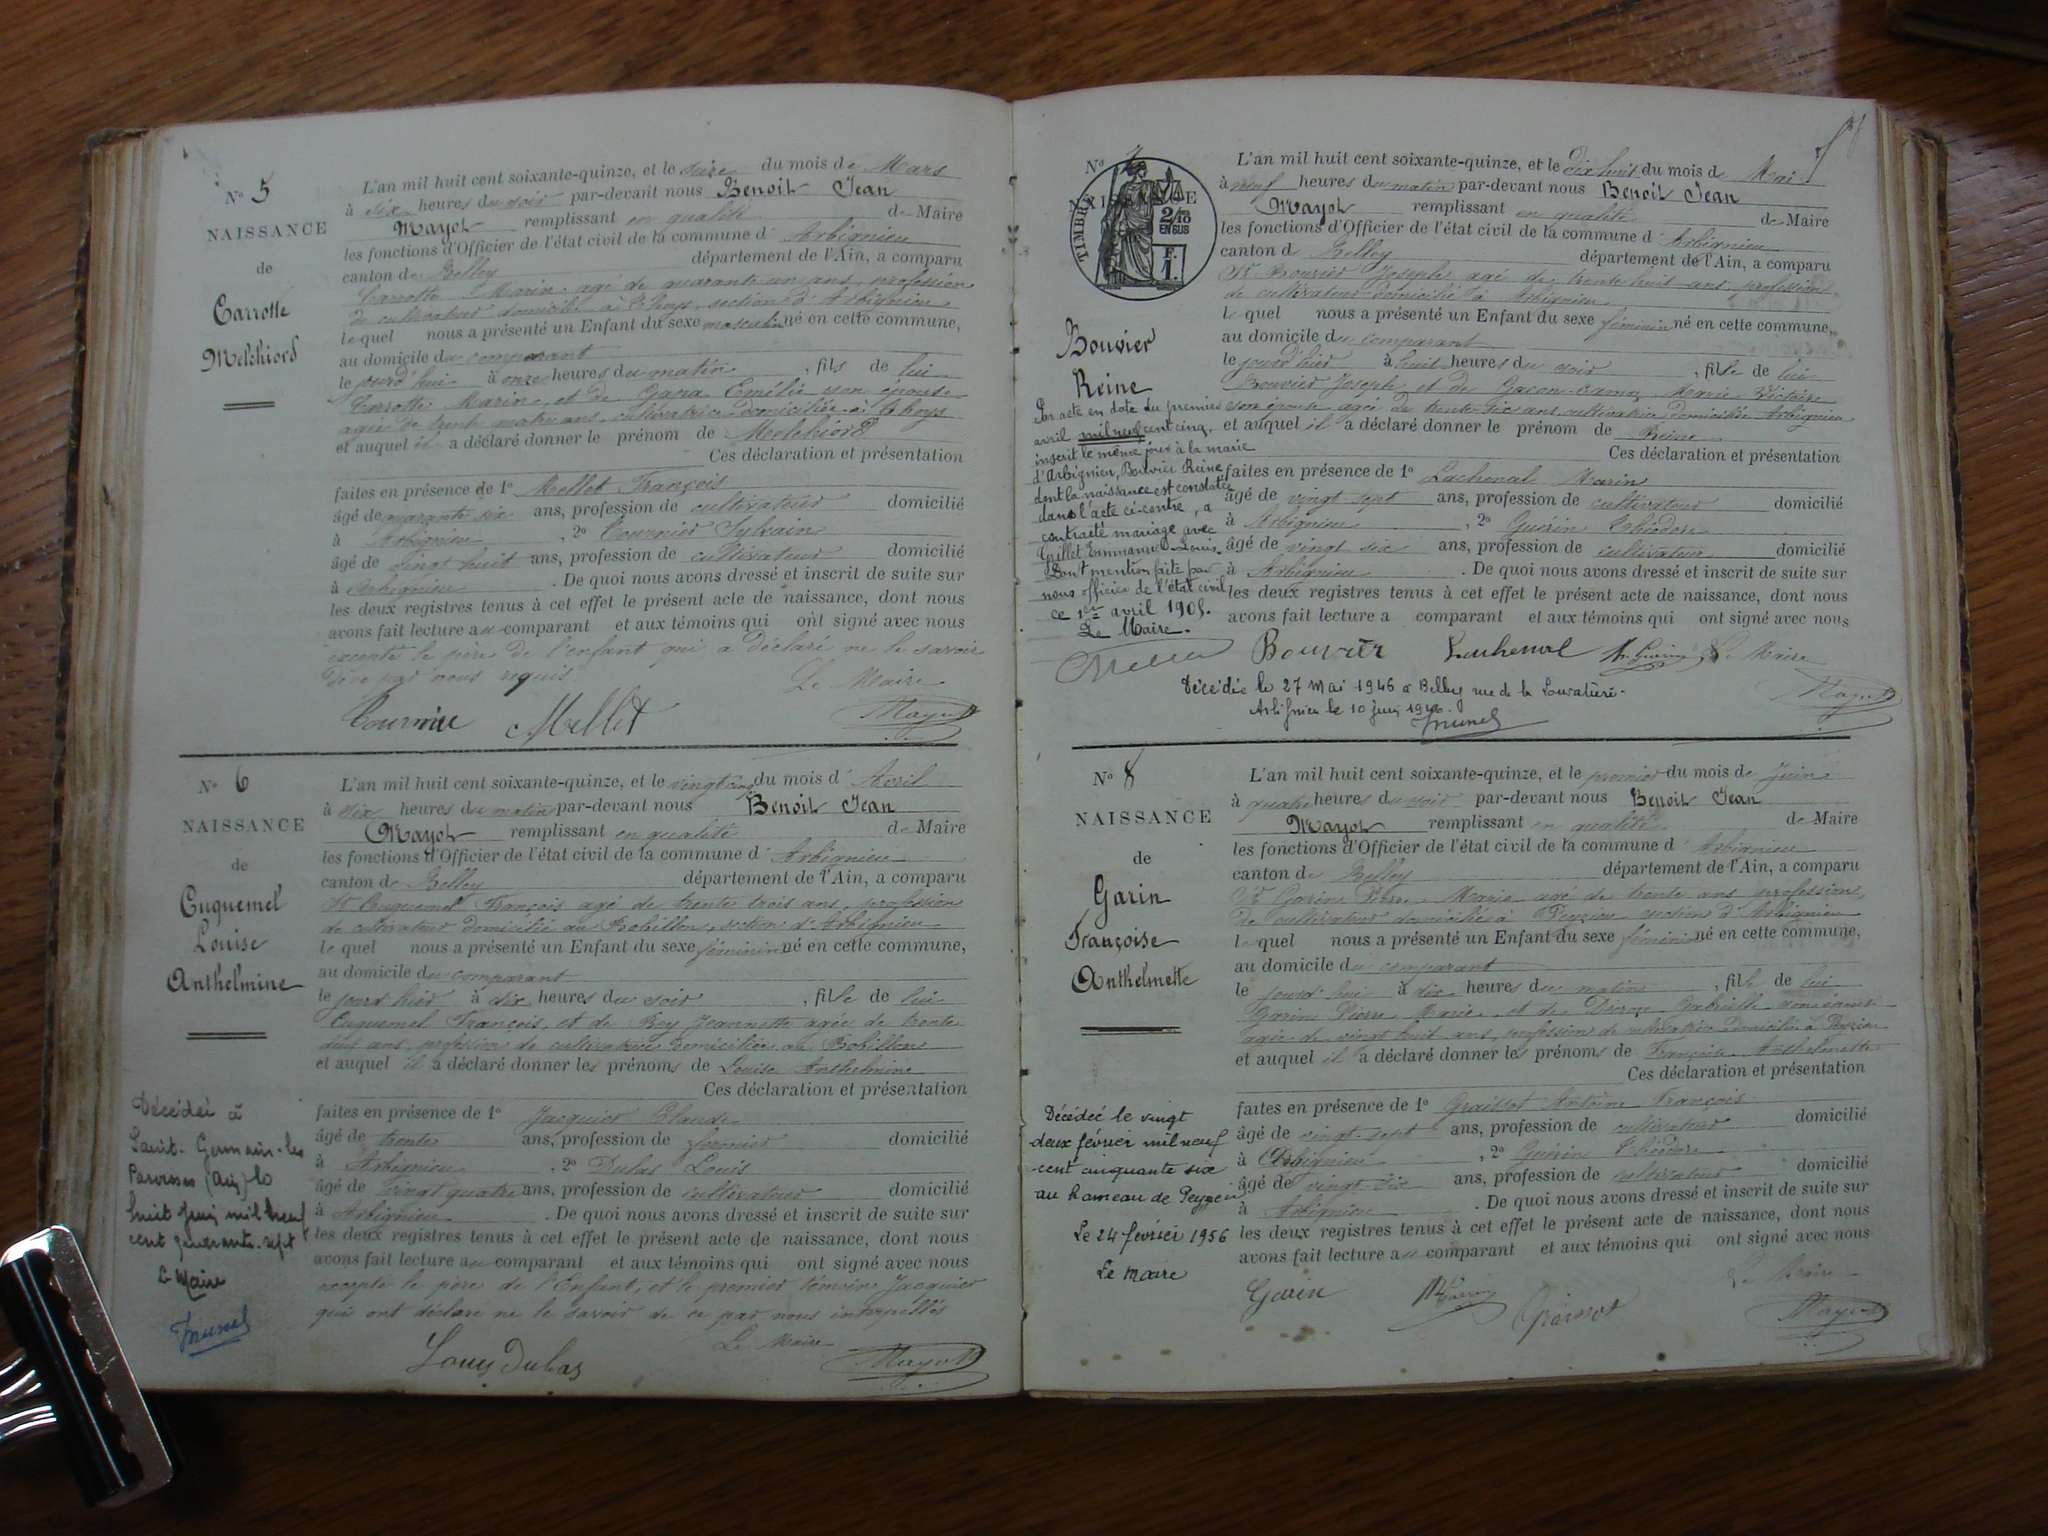 No 5
NAISSANCE
de
Carrotte
Melchiord
L'an mil huit cent soixante-quinze, et le seize du mois de Mars
à dix heures du soir par-devant nous Benoit Jean
Mayot remplissant en qualité de Maire
les fonctions d'Officier de l'état civil de la commune d'Arbignieu
canton de Belley département de l'Ain, a comparu
Carrotte Marin agé de quarante un ans, profession
de cultivateur domicilié à section d'Arbignieu
lequel nous a présenté un Enfant du sexe masculin né en cette commune,
au domicile du comparant
le jourd'hui à onze heures du matin, fils de lui
Carrotte Marin et de Emélie son épouse
agée de trente ans cultivatrice domiciliée à
et auquel il a déclaré donner le prénom de Melchiord
Ces déclaration et présentation
faites en présence de 1o Mellet François
âgé de quarante six ans, profession de cultivateur domicilié
à Arbignieu, 2o Tournier Sylvain
âgé de vingt huit ans, profession de cultivateur domicilié
à Arbignieu. De quoi nous avons dressé et inscrit de suite sur
les deux registres tenus à cet effet le présent acte de naissance, dont nous
avons fait lecture au comparant et aux témoins qui ont signé avec nous
excepté le père de l'enfant qui a déclaré ne le savoir
par nous requis
Le Maire
Tournier Mellet Mayot
No 6
NAISSANCE
de
Cuquemel
Louise
Anthelmine
L'an mil huit cent soixante-quinze, et le vingt cinq du mois d'Avril
à dix heures du matin par-devant nous Benoit Jean
Mayot remplissant en qualité de Maire
les fonctions d'Officier de l'état civil de la commune d'Arbignieu
canton de Belley département de l'Ain, a comparu
Sr Cuquemel François agé de trente trois ans, profession
de cultivateur domicilié au Robillon, section d'Arbignieu
lequel nous a présenté un Enfant du sexe féminin né en cette commune,
au domicile du comparant
le jour d'hier à dix heures du soir, fille de lui
Cuquemel François, et de Rey Jeannette agée de trente
deux ans, profession de cultivatrice domiciliée au Robillon
et auquel il a déclaré donner les prénoms de Louise Anthelmine
Ces déclaration et présentation
faites en présence de 1o Jacquier Claude
âgé de trente ans, profession de fermier domicilié
à Arbignieu, 2o Dubas Louis
âgé de vingt quatre ans, profession de cultivateur domicilié
à Arbignieu. De quoi nous avons dressé et inscrit de suite sur
les deux registres tenus à cet effet le présent acte de naissance, dont nous
avons fait lecture au comparant et aux témoins qui ont signé avec nous
excepté le père de l'Enfant, et le premier témoin Jacquier
qui ont déclaré ne le savoir de ce par nous interpellés
Le Maire
Louis Dubas Mayot
Décédée à
Saint-Germain-les
Paroisses (Ain) le
huit juin mil neuf
cent quarante-sept
Le Maire
Brunel
No 7
NAISSANCE
TIMBRE
2/10
EN SUS
F.
1.
Bouvier
Reine
L'an mil huit cent soixante-quinze, et le dix huit du mois de Mai
à neuf heures du matin par-devant nous Benoit Jean
Mayot remplissant en qualité de Maire
les fonctions d'Officier de l'état civil de la commune d'Arbignieu
canton de Belley département de l'Ain, a comparu
Sr Bouvier Joseph agé de trente huit ans, profession
de cultivateur domicilié à Arbignieu
lequel nous a présenté un Enfant du sexe féminin né en cette commune,
au domicile du comparant
le jour d'hier à huit heures du soir, fille de lui
Bouvier Joseph et de Gacon-Camoz Marie
son épouse agé de trente six ans cultivatrice domiciliée Arbignieu
et auquel il a déclaré donner le prénom de Reine
Ces déclaration et présentation
faites en présence de 1o Lachenal Marin
âgé de vingt sept ans, profession de cultivateur domicilié
à Arbignieu, 2o Guérin Théodore
âgé de vingt six ans, profession de cultivateur domicilié
à Arbignieu. De quoi nous avons dressé et inscrit de suite sur
les deux registres tenus à cet effet le présent acte de naissance, dont nous
avons fait lecture a comparant et aux témoins qui ont signé avec nous
Par acte en date du premier
avril mil neuf cent cinq,
inscrit le même jour à la mairie
d'Arbignieu, Bouvier Reine
dont la naissance est constatée
dans l'acte ci-contre, a
contracté mariage avec
Grillet Emmanuel-Louis.
Dont mention faite par
nous officier de l'état civil
ce 1er avril 1905.
Le Maire.
Bouvier Lachenal Le Maire
Mayot
Décédée le 27 Mai 1946 à Belley rue de la
Arbignieu le 10 juin 1946.
Brunel
No 8
NAISSANCE
de
Garin
Françoise
Anthelmette
L'an mil huit cent soixante-quinze, et le premier du mois de Juin
à quatre heures du soir par-devant nous Benoit Jean
Mayot remplissant en qualité de Maire
les fonctions d'Officier de l'état civil de la commune d'Arbignieu
canton de Belley département de l'Ain, a comparu
Sr Garin Pierre Marie agé de trente ans profession
de cultivateur domicilié à Peyzieu section d'Arbignieu
lequel nous a présenté un Enfant du sexe féminin né en cette commune,
au domicile du comparant
le jourd'hui à dix heures du matin, fille de lui
Garin Pierre Marie et de Gabrielle son épouse
agée de vingt huit ans, profession de cultivatrice domiciliée à Peyzieu
et auquel il a déclaré donner les prénoms de Françoise Anthelmette
Ces déclaration et présentation
faites en présence de 1o Graissot Antoine François
âgé de vingt sept ans, profession de cultivateur domicilié
à Arbignieu, 2o Guérin Théodore
âgé de vingt six ans, profession de cultivateur domicilié
à Arbignieu. De quoi nous avons dressé et inscrit de suite sur
les deux registres tenus à cet effet le présent acte de naissance, dont nous
avons fait lecture au comparant et aux témoins qui ont signé avec nous
Le Maire
Garin Mayot
Décédée le vingt
deux février mil neuf
cent cinquante six
au hameau de Peyzieu
Le 24 février 1956
Le maire